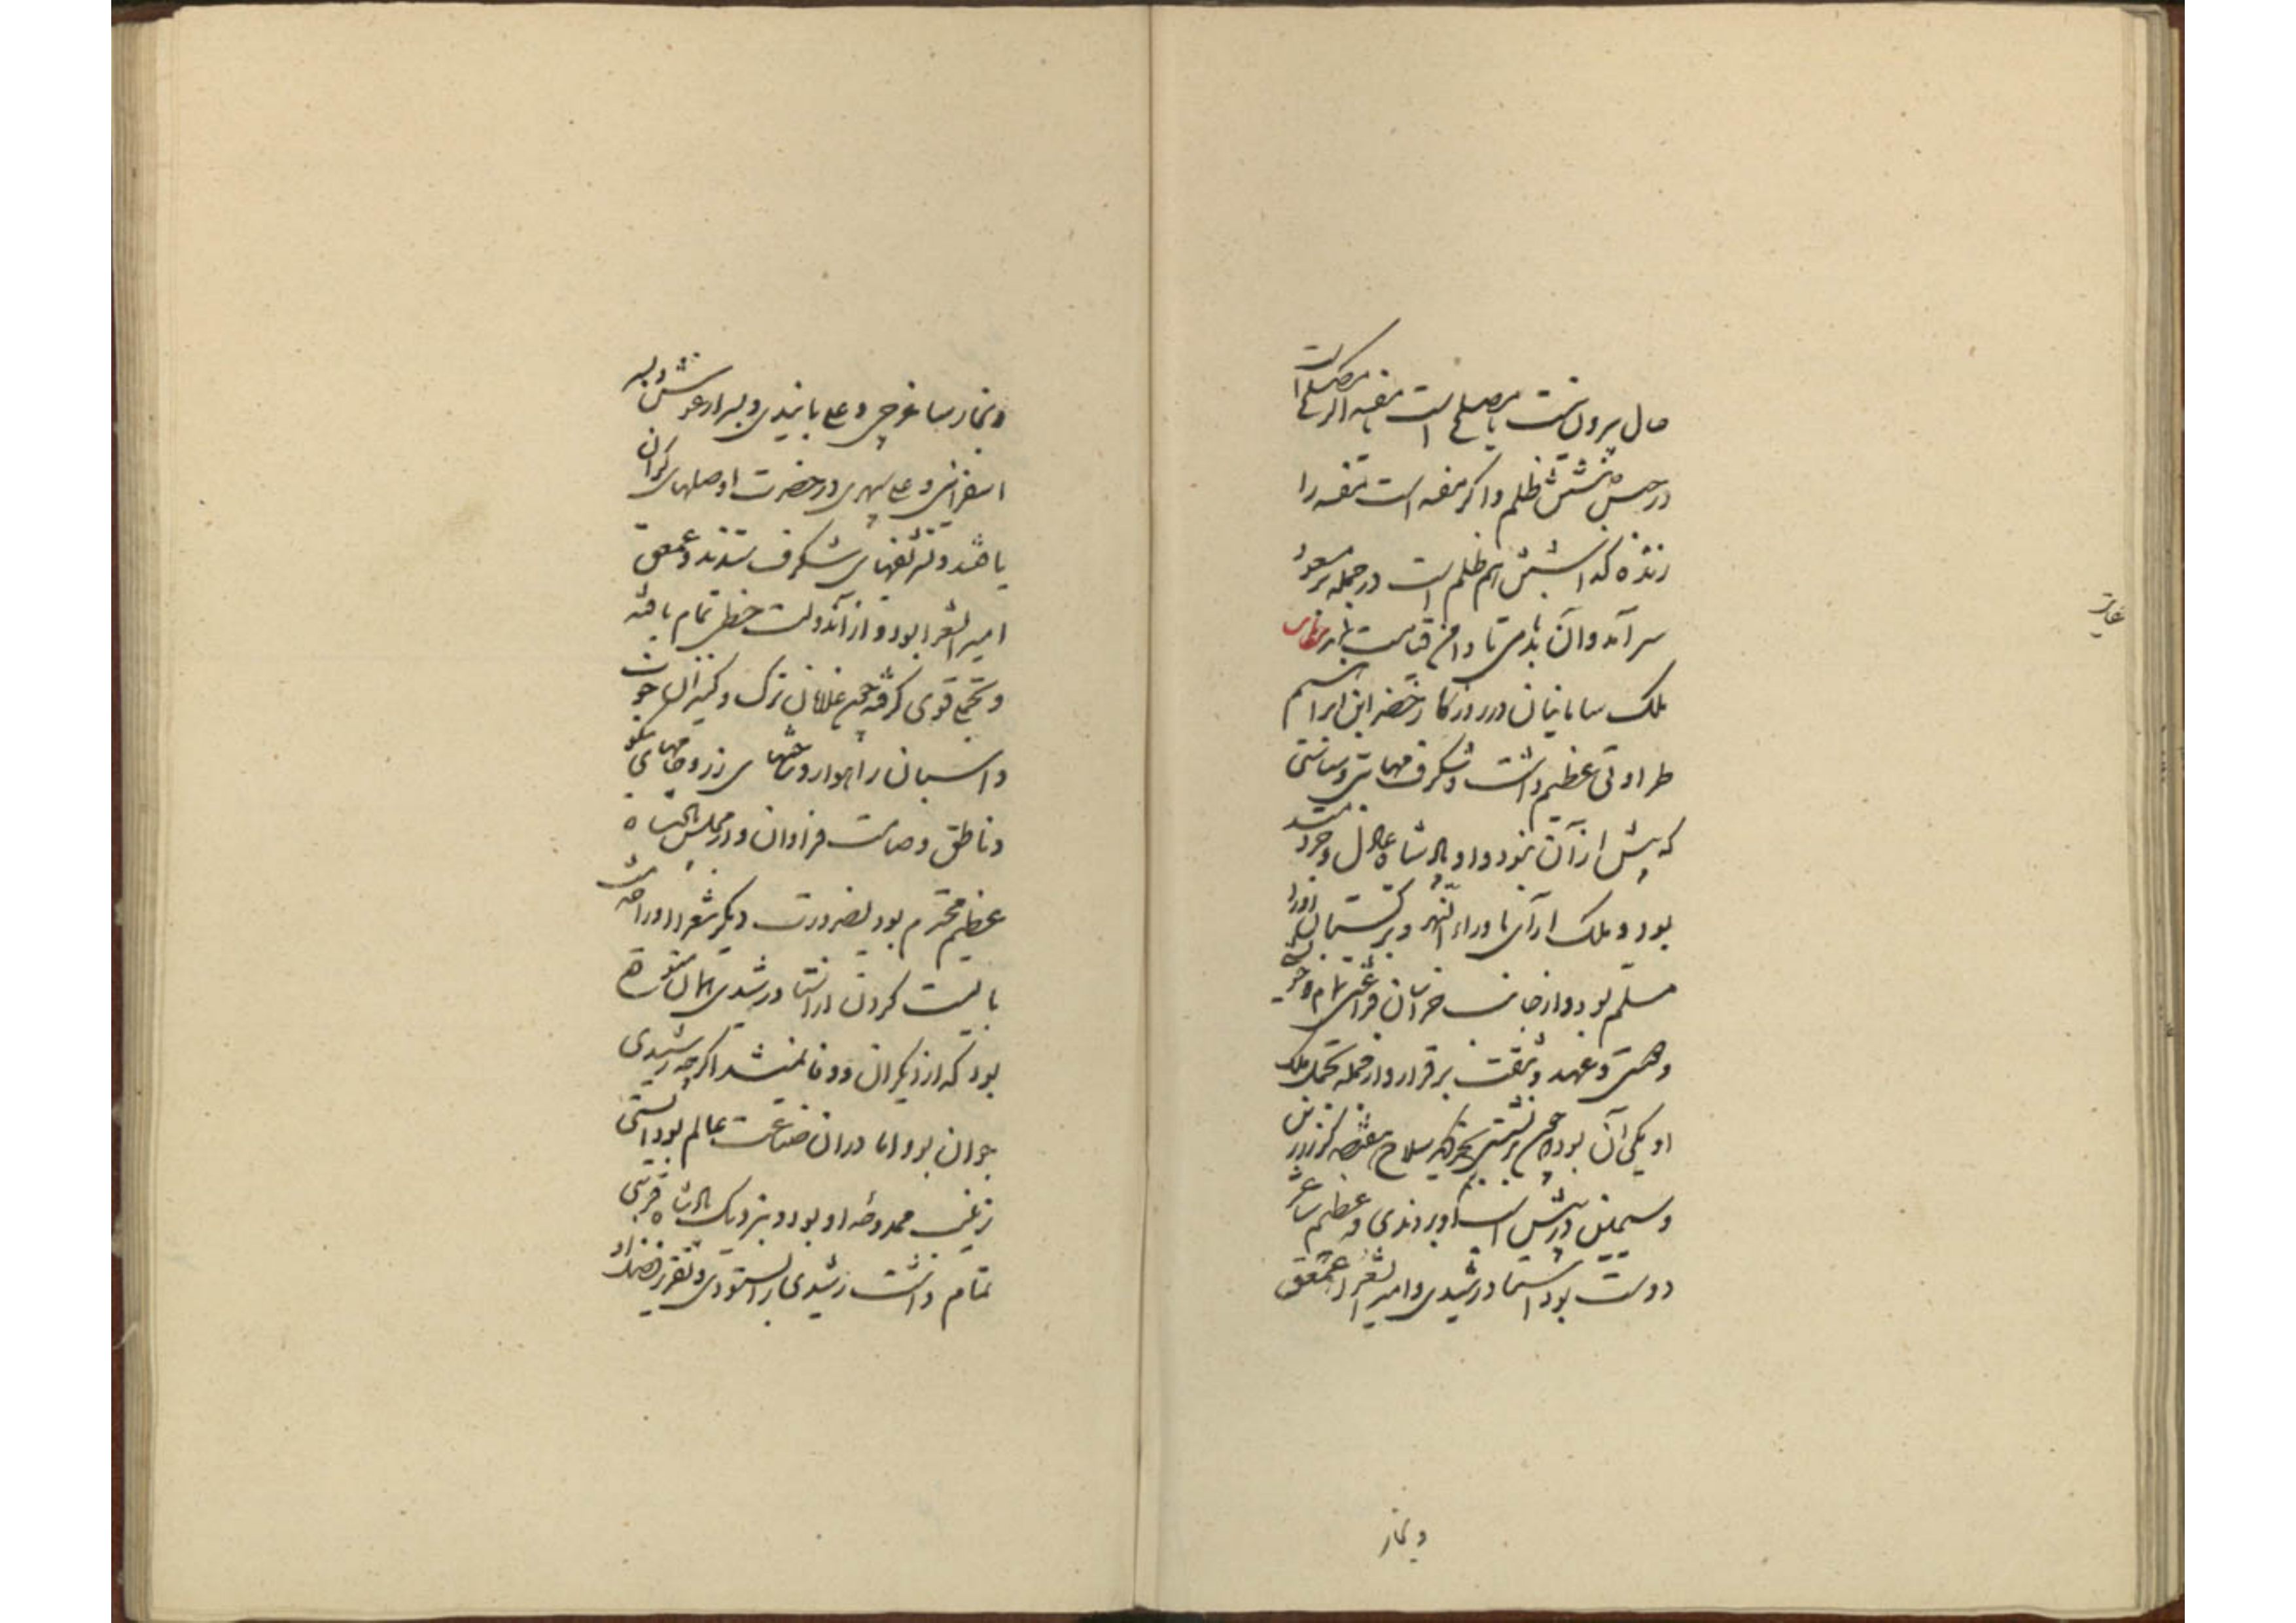 حال بیرون نیست یا مصلح است یا مفسد اگر مصلح است
در حبس داشتنش ظلم و اگر مفسد است مفسد را
زنده گذاشتن هم ظلم است در جمله بر مسعود
سر آمد و آن بدنامی تا دامن قیامت بماند حکایت
ملک سامانیان در روزگار خضر ابن ابراهیم
طراوتی عظیم داشت و شگرف مهابتی و سیاستی
که پیش از آن نبود و او پادشاه عادل و خردمند
بود و ملک آرای ماوراء النهر و ترکستان او را
مسلم بود و از جانب خراسان فراغتی تمام و خویشی
و دوستی و عهد و وثیقت برقرار و از جمله تجمل ملک
او یکی آن بود که چون برنشستی بجز دیگر سلاح هفتصد گرز زرین
و سیمین در پیش اسب او بردندی و عظیم شاعر
دوست بود استاد رشیدی و امیر الشعرا عمعق
و نجار
و نجار ساغرچی و علی بانیذی و پسر درغوش و پسر
اسفراینی و علی سپهری در حضرت او صلهای گران
یافتند و تشریفهای شگرف ستدند و عمعق
امیر الشعرا بود و از آن دولت حظی تمام یافته
و تجملی قوی گرفته چون غلامان ترک و کنیزان خوب
و اسبان راهوار و ساختهای زر و جامهای نیکو
و ناطق و صامت فراوان و در مجلس پادشاه
عظیم محترم بود بضرورت دیگر شعرا را خدمت
بایست کردن و از استاد رشیدی همان متوقع
بود که از دیگران و وفا نمیشد اگرچه رشیدی
جوان بود اما در آن صناعت عالم بود ستی
زینب ممدوحه او بود و بنزدیک پادشاه قربتی
تمام داشت رشیدی را بستودی و تقریر فضل او